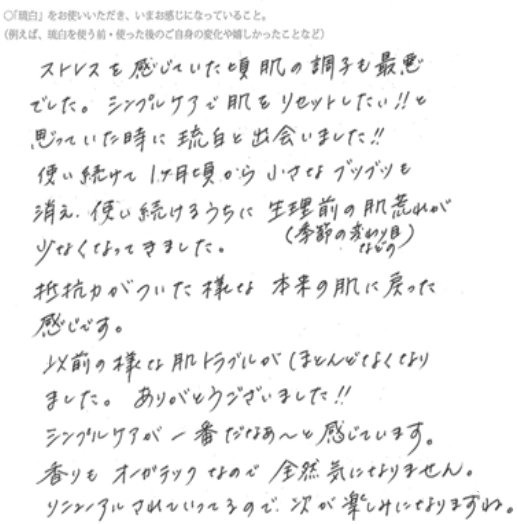 ○「琉白」をお使いいただき、いまお感じになっていること。
（例えば、琉白を使う前・使った後のご自身の変化や嬉しかったことなど）
ストレスを感じていた頃肌の調子も最悪
でした。シンプルケアで肌をリセットしたい!!と
思っていた時に琉白と出会いました!!
使い続けて1ヶ月頃から小さなブツブツも
消え、使い続けるうちに生理前の肌荒れが
(季節の変わり目などの)
少なくなってきました。
抵抗力がついた様な本来の肌に戻った
感じです。
以前の様な肌トラブルがほとんどなくなり
ました。ありがとうございました!!
シンプルケアが一番だなぁ〜と感じています。
香りもオーガニックなので全然気になりません。
リニューアルされていってるので、次が楽しみになりますね。